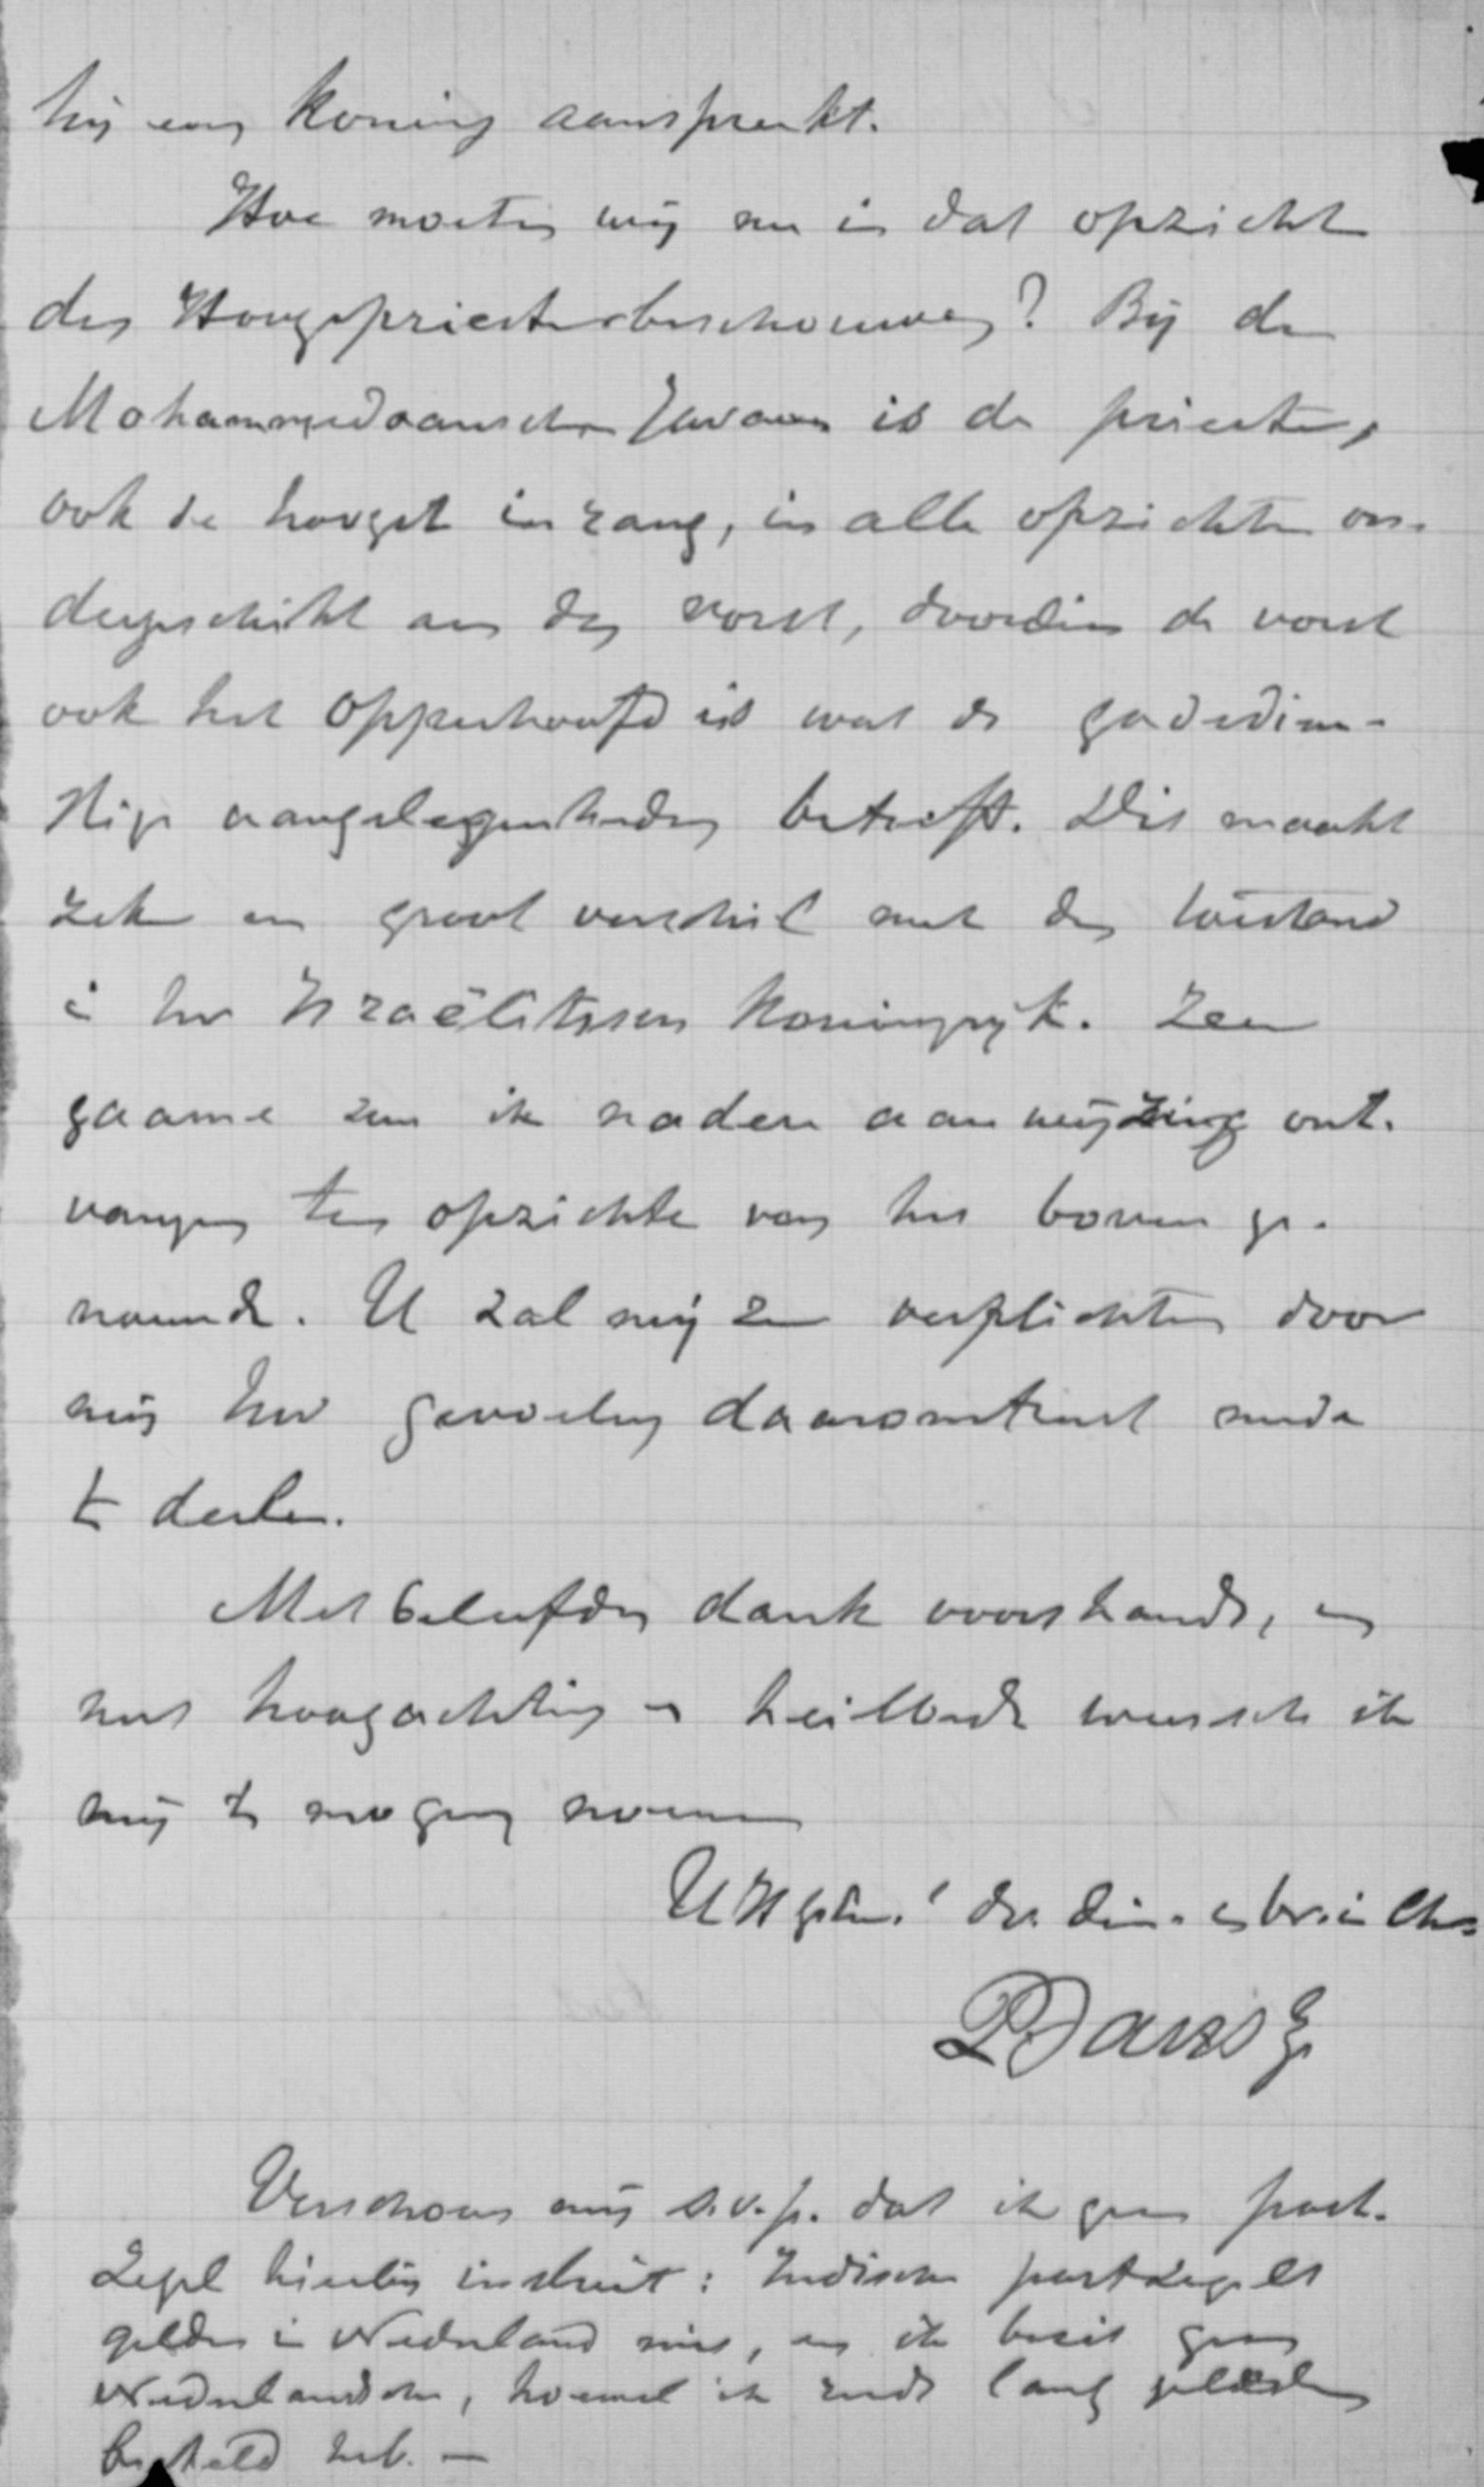 hij een koning aanspreekt.
Hoe moeten wij nu in dat opzicht
den Hoogepriester beschouwen? Bij de
Mohammedaansche Javanen is de priester,
ook de hoogst in rang, in alle opzichten on-
dergeschikt aan den vorst, doordien de vorst
ook het opperhoofd is wat de godsdien-
stige aangelegenheden betreft. Dit maakt
zeker een groot verschil met den toestand
in het Israëlitischen Koningrijk. Zeer
gaarne zou ik nadere aanwijzing ont-
vangen ten opzichte van het boven ge-
noemde. U zal mij zeer verplichten door
mij Uw gevoelen daaromtrent mede
te deelen.
Met beleefden dank voorshands, en
met hoogachting en heilbede wensch ik
mij te mogen noemen
UHgel. dw. dien. en br. in Chr.
Verschoon mij s.v.p. dat ik geen post-
zegel hierbij insluit: Indische postzegels
gelden in Nederland niet, en ik bezit geen
Nederlandsche, hoewel ik reeds lang geleden
besteld heb. —